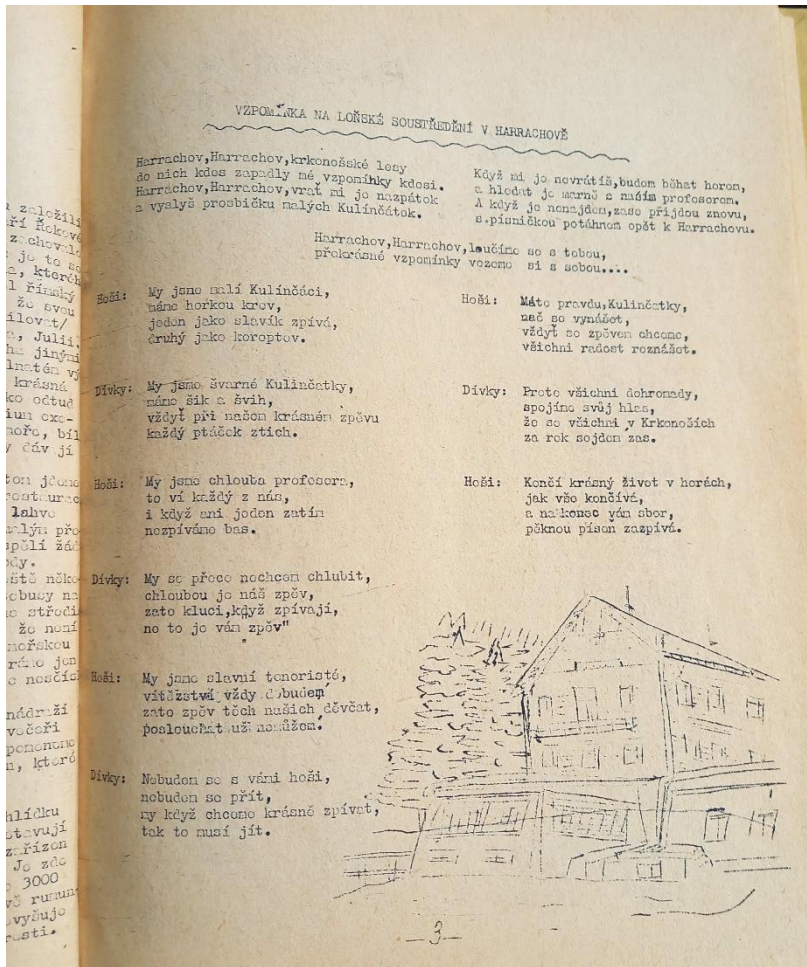 VZPOMÍNKA NA LOŇSKÉ SOUSTŘEDĚNÍ V HARRACHOVĚ
Harrachov,Harrachov,krkonošské lesy
do nich kdes zapadly mé vzpomíhky kdesi.
Harrachov,Harrachov,vrať mi je nazpátek
a vyslyš prosbičku malých Kulínčátek.
Když mi je nevrátíš,budem běhat horem,
a hledat je marně s naším profesorem.
A když je nenajdem,zase přijdou znovu,
s písničkou potáhnem opět k Harrachovu.
Harrachov,Harrachov,loučíme se s tebou,
překrásné vzpomínky vezeme si s sebou....
Hoši: My jsme malí Kulínčáci,
máme horkou krev,
jeden jako slavík zpívá,
druhý jako koroptev.
Dívky: My jsme švarné Kulínčatky,
máme šik a švih,
vždyť při našem krásném zpěvu
každý ptáček ztich.
Hoši: My jsme chlouba profesora,
to ví každý z nás,
i když ani jeden zatím
nezpíváme bas.
Dívky: My se přece nechcem chlubit,
chloubou je náš zpěv,
zato kluci,když zpívají,
no to je vám zpěv"
Hoši: My jsme slavní tenoristé,
vítězství vždy dobudem
zato zpěv těch našich děvčat,
poslouchat už nemůžem.
Dívky: Nebudem se s vámi hoši,
nebudem se přít,
my když chceme krásně zpívat,
tak to musí jít.
Hoši: Máte pravdu,Kulínčatky,
nač se vynášet,
vždyť se zpěvem chceme,
všichni radost roznášet.
Dívky: Proto všichni dohromady,
spojíme svůj hlas,
že se všichni v Krkonoších
za rok sejdem zas.
Hoši: Končí krásný život v horách,
jak vše končívá,
a nakonec vám sbor,
pěknou píseň zazpívá.
3